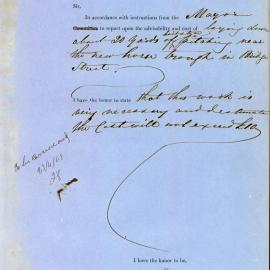 Sir,
In accordance with instructions from the Mayor
Committee to report upon the advisability and cost of laying down
about 20 Yards of pitching near
the new horse trough in Bridge
Street.
I have the honor to state that this work is
very necessary and I estimate
the Cost will not exceed £10
23/4/63
I have the honor to be,